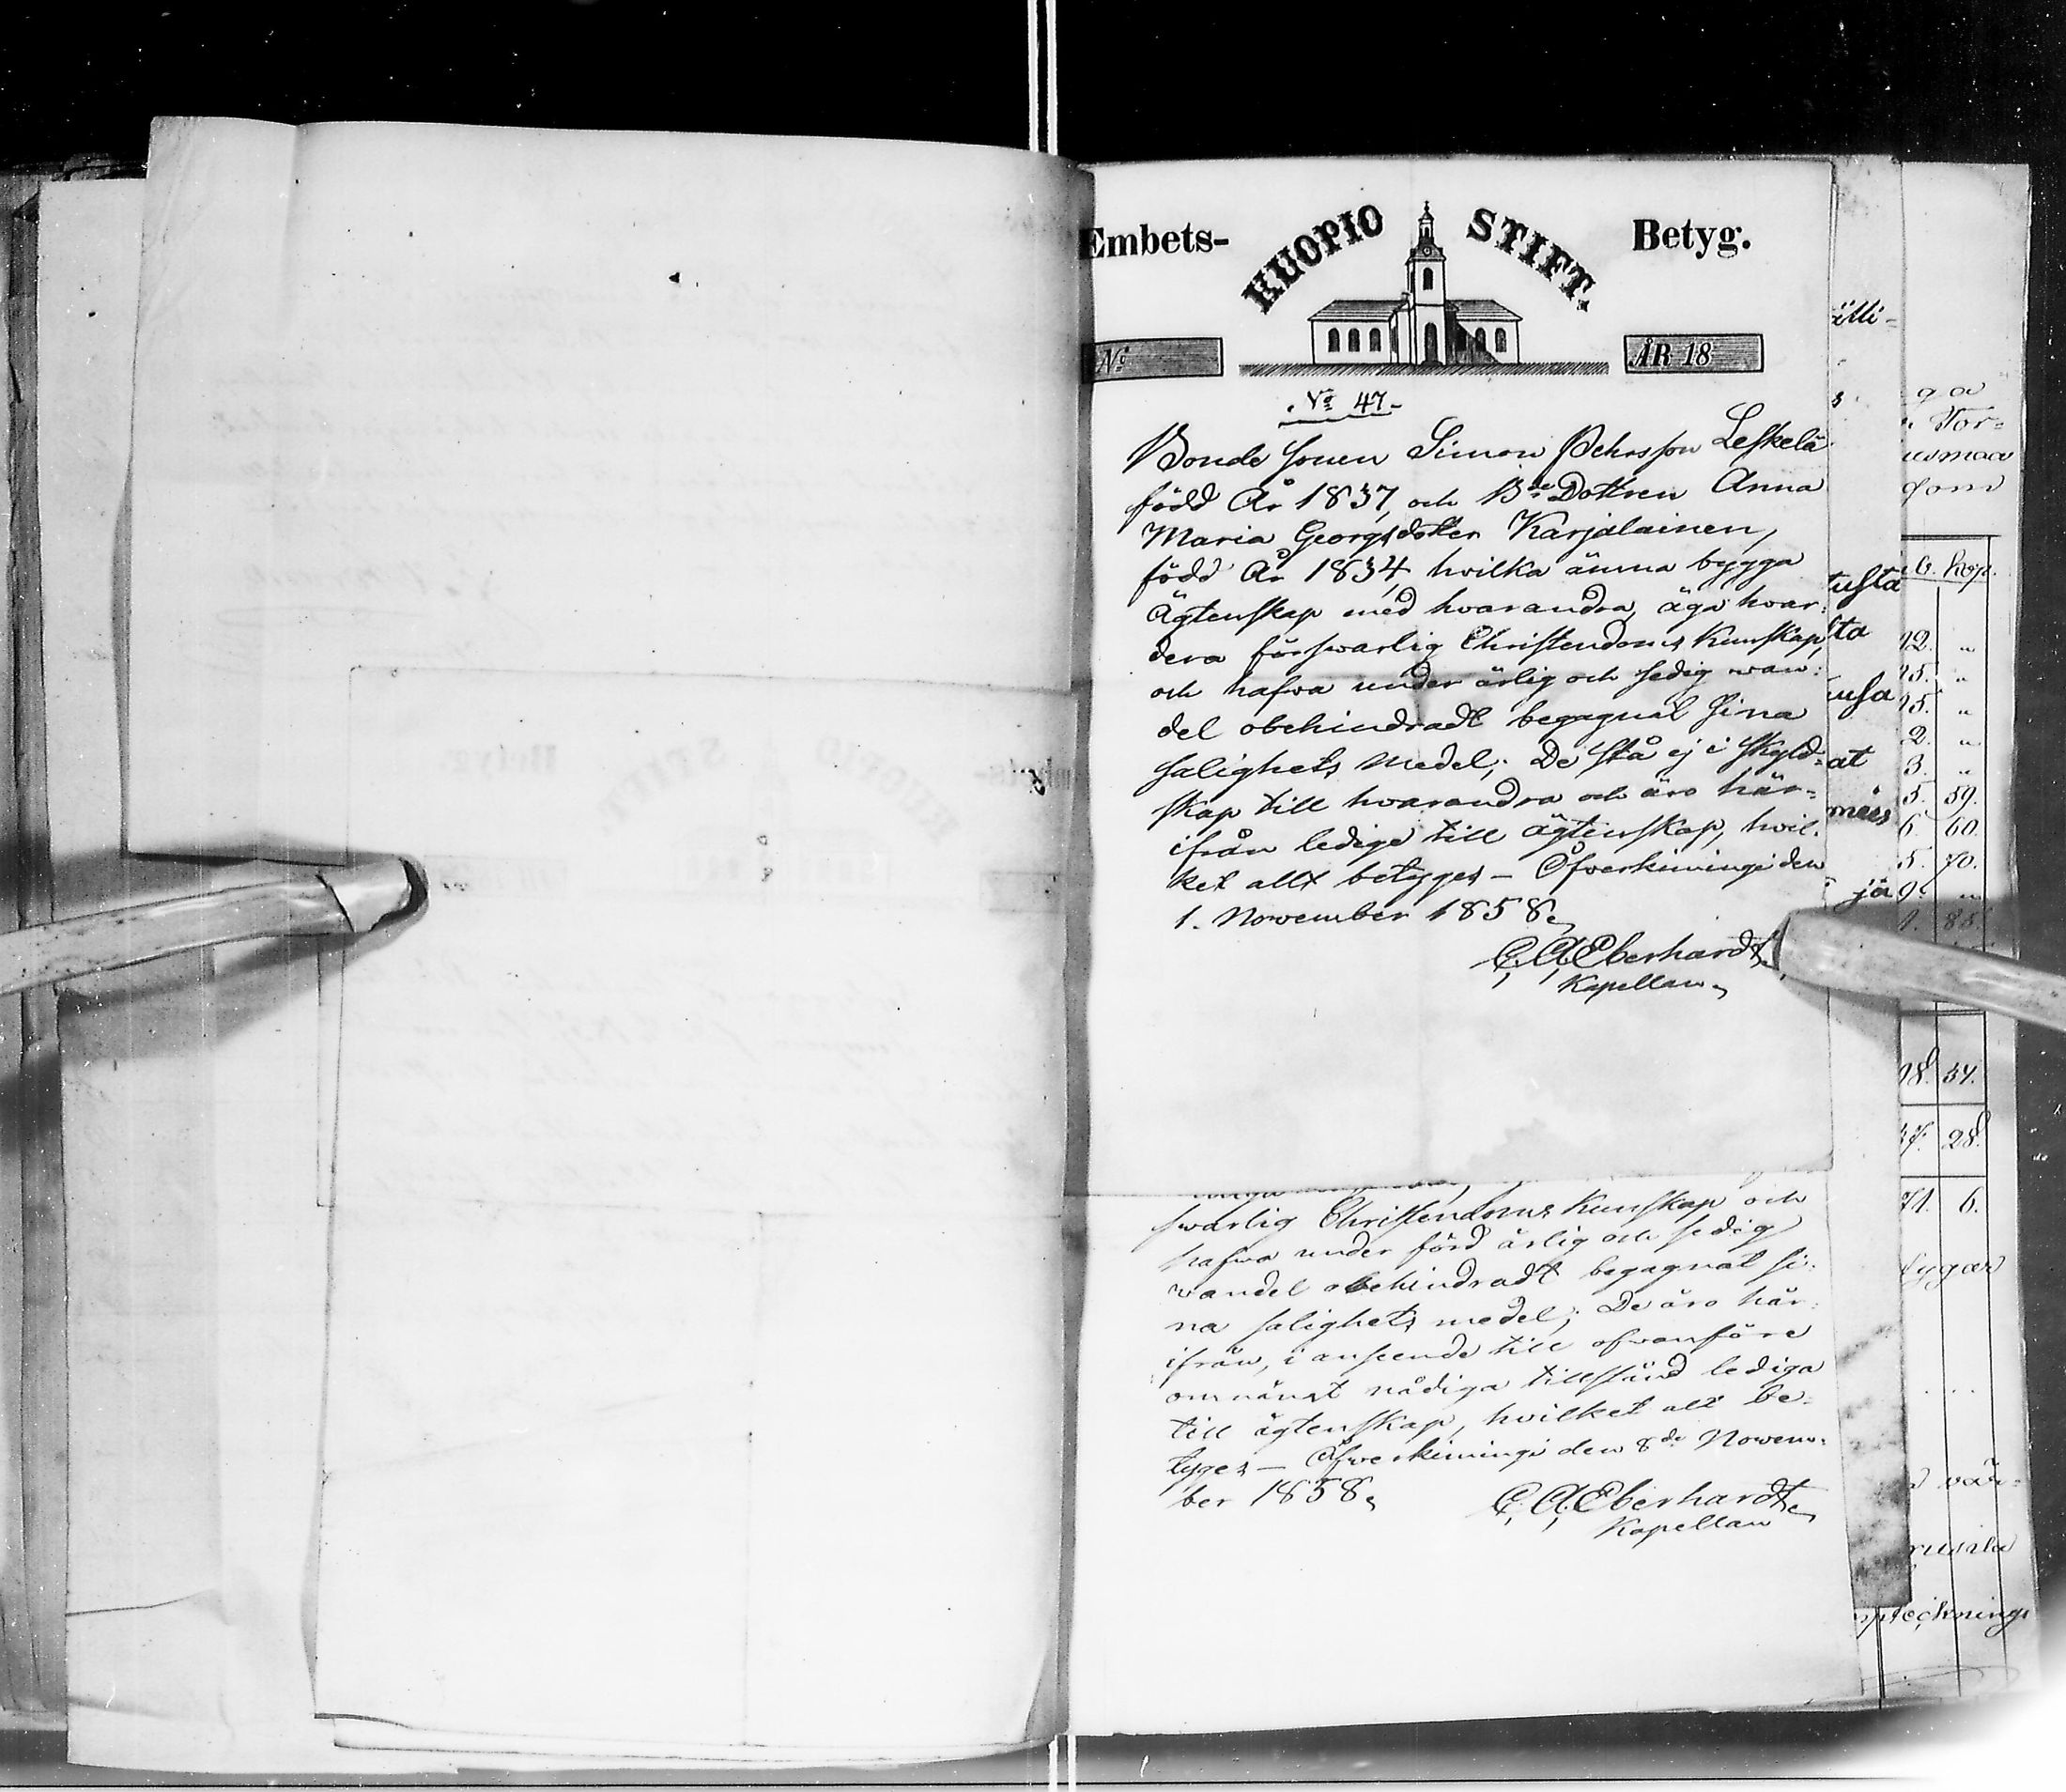 Embets- KUOPIO STIFT. Betyg.
No ÅR 18
No 47.
Bonde sonen Simon Pehrsson Leskelä
född År 1837, och Bde Dottren Anna
Maria Georgsdotter Karjalainen,
född År 1834, hvilka ämna bygga
Ägtenskap med hvarandra, äga hvar-
dera förswarlig Christendoms Kunskap,
och hafva under ärlig och sedig wan-
del obehindradt begagnat sina
salighets medel; De stå ej i skyld-
skap till hvarandra och äro här-
ifrån ledige till ägtenskap, hvil-
ket allt betyges – Öfverkiminge den
1. November 1858.
C. A. Eberhardt,
Kapellan.
swarlig Christendoms Kunskap och
hafva under förd ärlig och sedig
wandel obehindradt begagnat si-
na salighets medel; De äro här-
ifrån, i anseende till ofvanföre
omnänt nådiga tillstånd lediga
till ägtenskap, hvilket allt be-
tyges – Öfverkiminge den 8de Novem-
ber 1858.
C. A. Eberhardt,
Kapellan
tusta
sta
usa
at
mees
ja
kop.
59.
60.
70.
85.
57.
28.
71. 6.